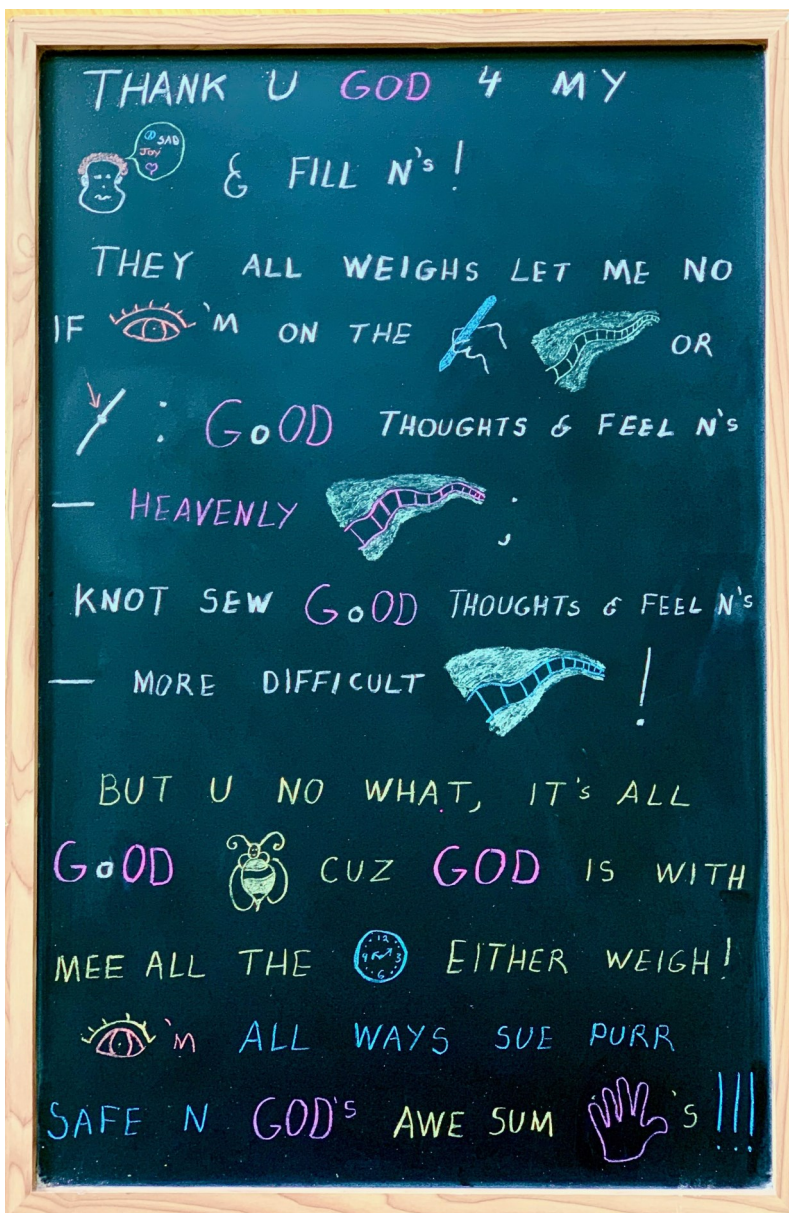 THANK U GOD 4 MY
SAD
JOY
& FILL N's!
THEY ALL WEIGHS LET ME NO
IF 'M ON THE OR
: GoOD THOUGHTS & FEEL N's
— HEAVENLY ;
KNOT SEW GoOD THOUGHTS & FEEL N's
— MORE DIFFICULT !
BUT U NO WHAT, IT's ALL
GoOD CUZ GOD IS WITH
MEE ALL THE 12 9 3 6 EITHER WEIGH!
'M ALL WAYS SUE PURR
SAFE N GOD's AWE SUM 's !!!